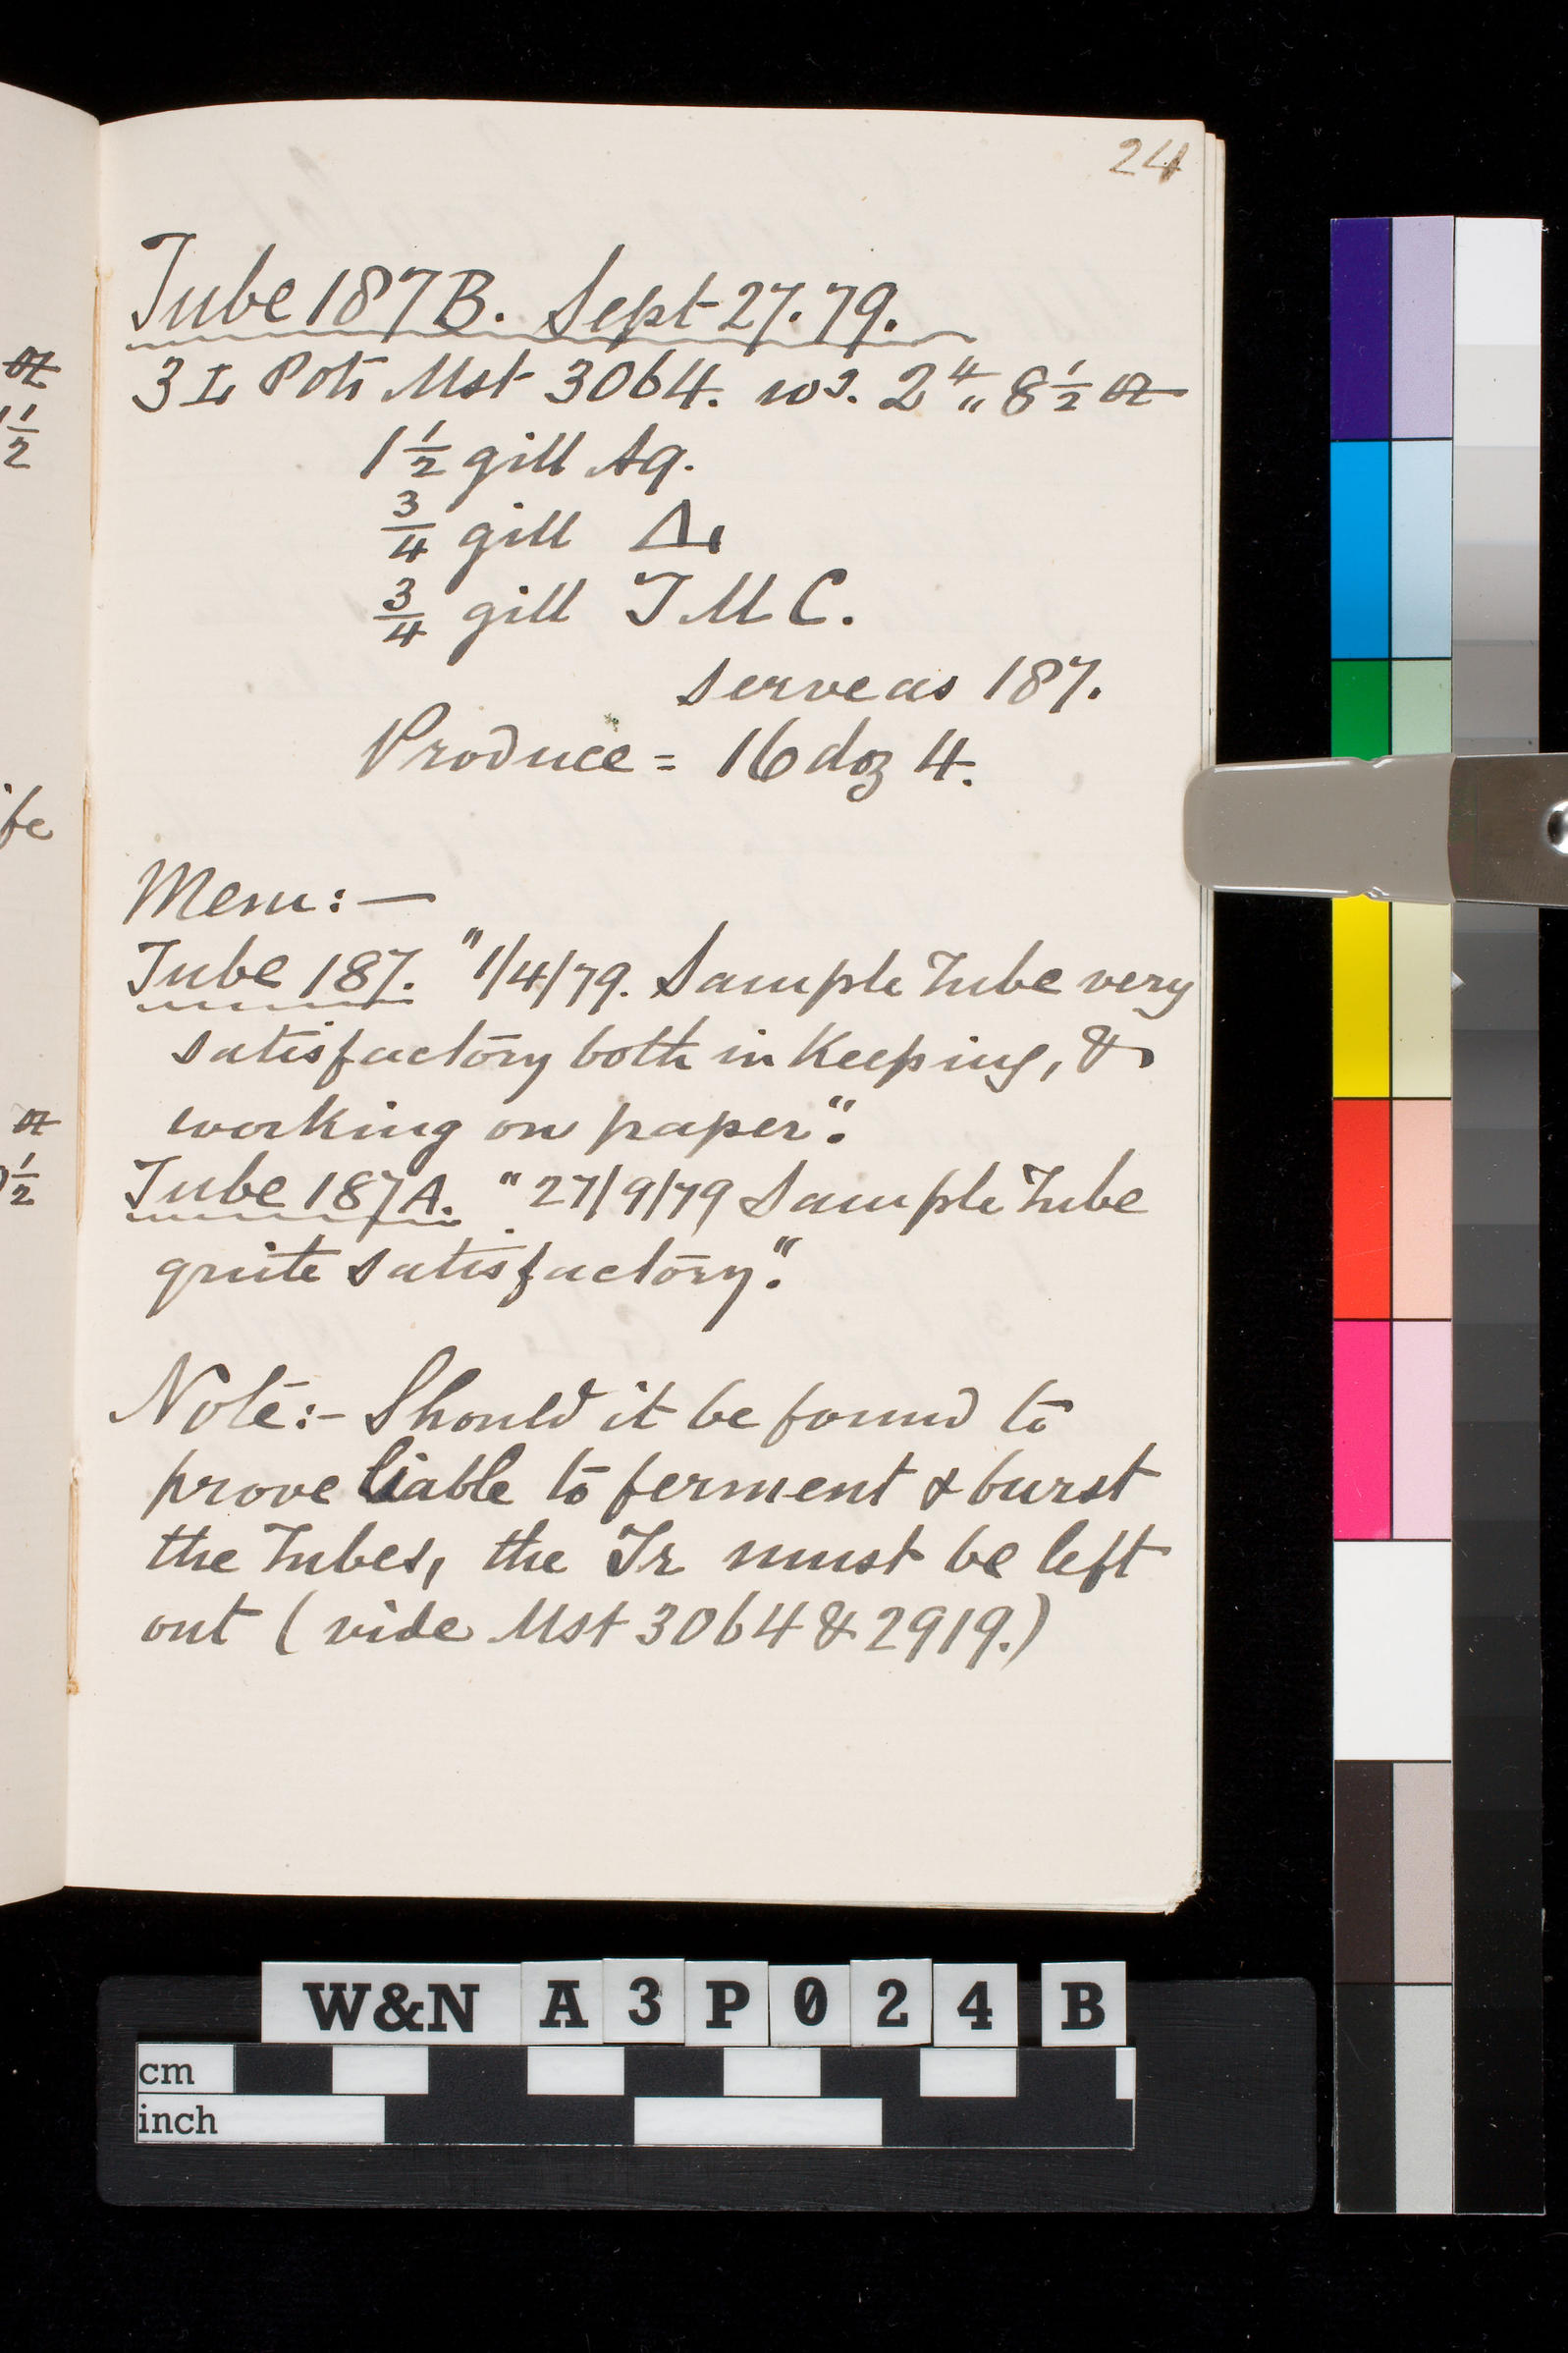 24
Tube 187B. Sept 27. 79.
3 L Pots Mst 3064. ws. 2 〃 8½ oz
1½ gill Aq.
¾ gill Δ.
¾ gill TMC.
serve as 187.
Produce = 16 doz 4.
Mem:—
Tube 187. "1/4/79. Sample Tube very
satisfactory both in Keeping, &
working on paper".
Tube 187A. "27/9/79 Sample Tube
quite satisfactory".
Note:- Should it be found to
prove liable to ferment & burst
the Tubes, the Tr must be left
out (vide Mst 3064 & 2919.)
W&N A3P024 B
cm
inch